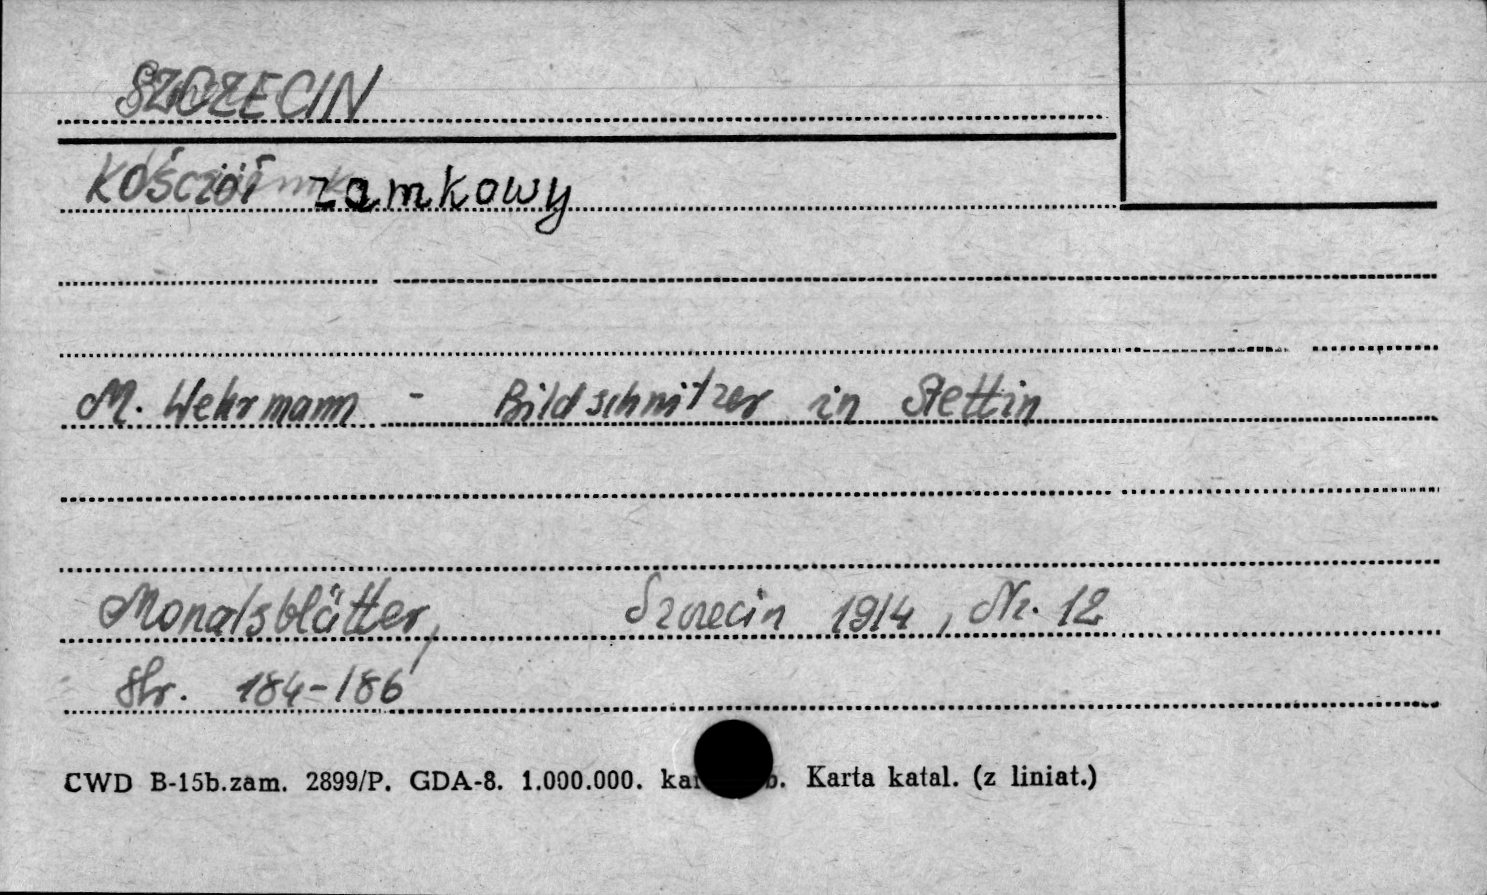 SZCZECIN
Kościół zamkowy
M. Wehrmann - Bildschnitzer in Stettin
Monatsblätter, Szczecin 1914, Nr. 12
Str. 184-186
CWD B-15b.zam. 2899/P. GDA-8. 1.000.000. Karta katal. (z liniat.)